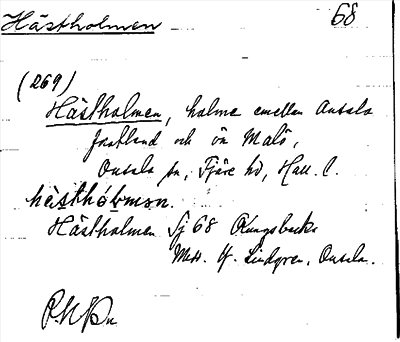 Hästholmen 68
(269)
Hästholmen, holme emellan Onsala
fastland och ön Malö,
Onsala sn, Fjäre hd, Hall. l.
Hästholmen Sj 68 Kungsbacka
Medd. Hj. Lindgren, Onsala.